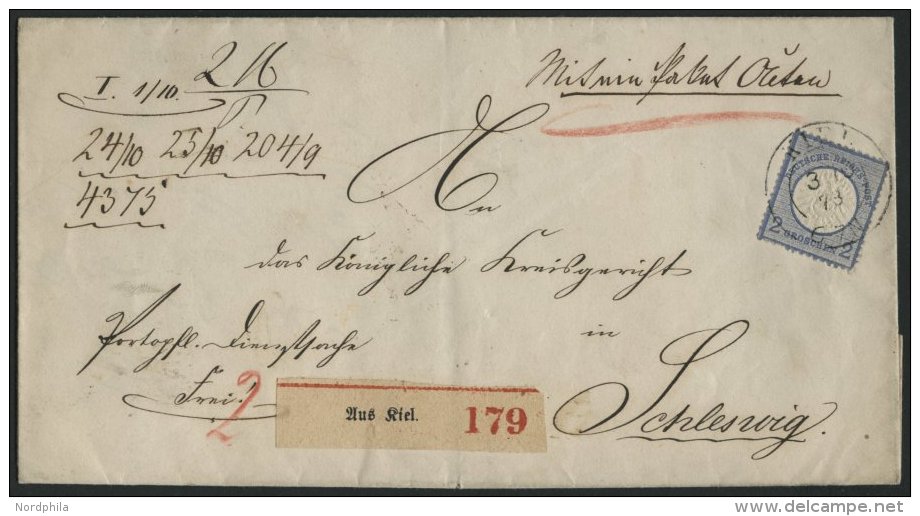 216
I. 1/10.
24/10 25/10 204/9
4375
Mit ein Paket Acten
KIEL
3
DEUTSCHE REICHS-POST
2 GROSCHEN 2
An
das Königliche Kreisgericht
in
Schleswig.
Portopfl. Dienstsache
Frei!
2
Aus Kiel. 179
Nordphila
www.delcampe.net